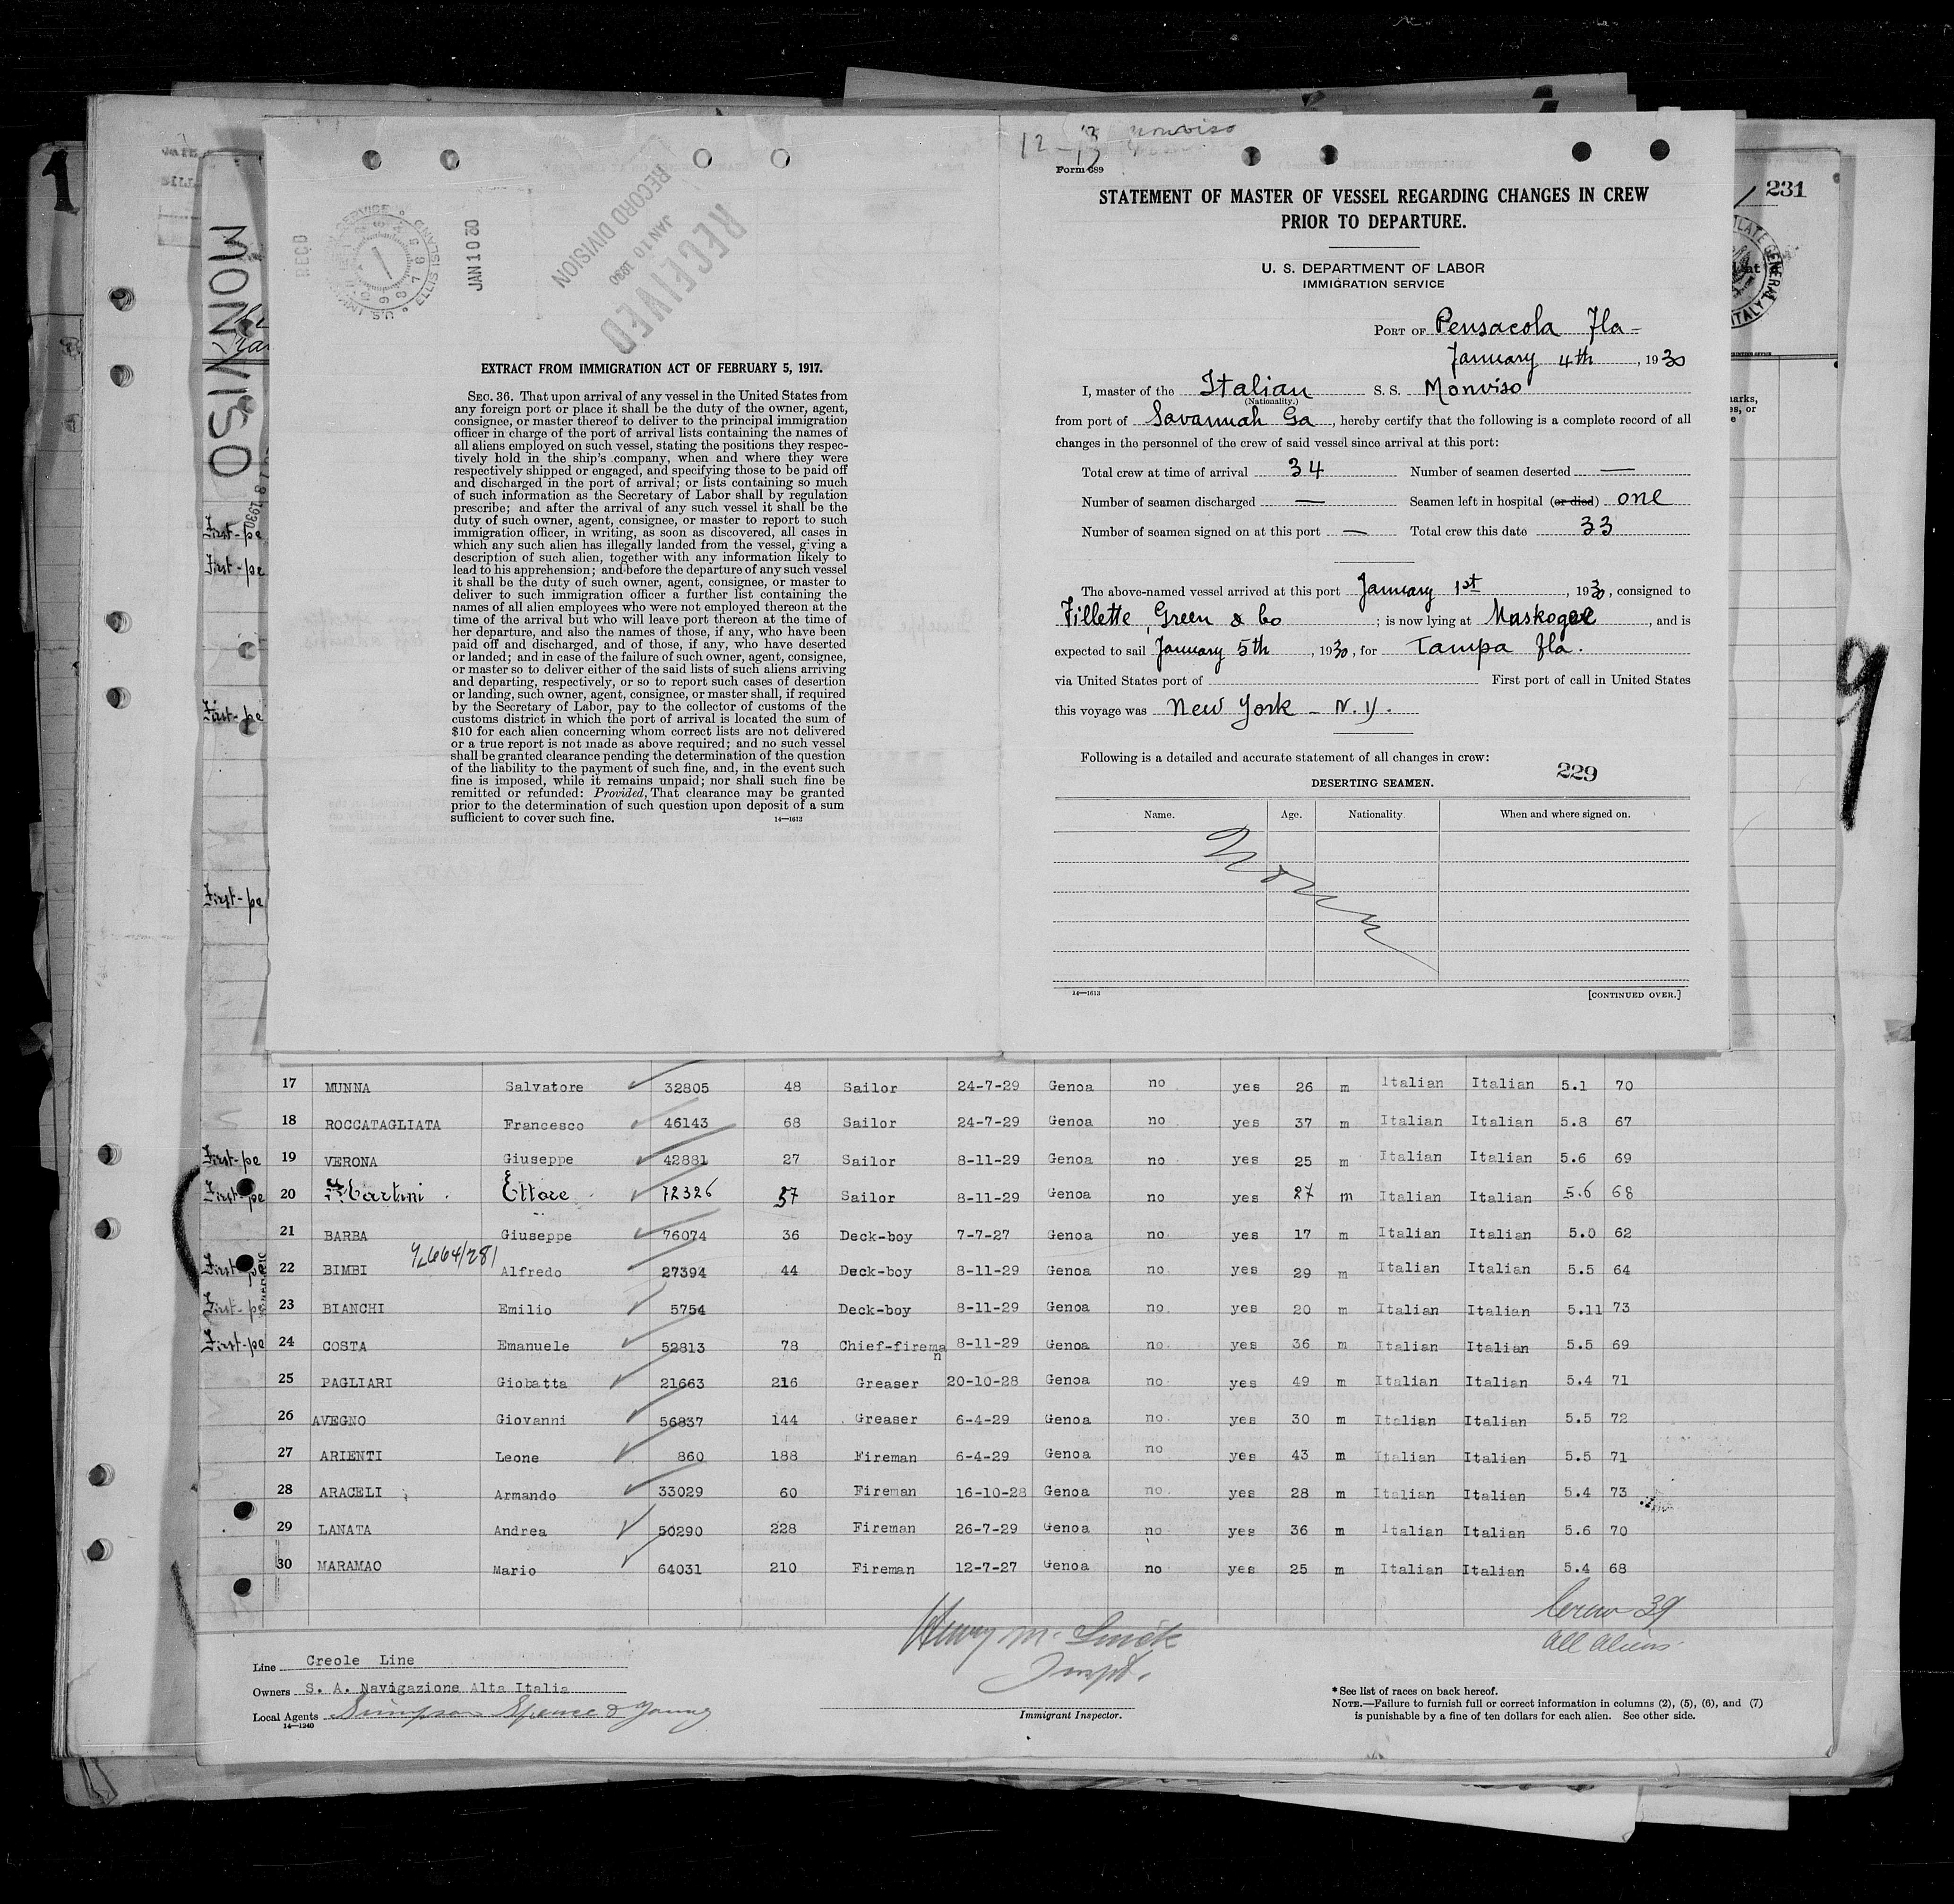 1
MONVISO
231
RECD
U.S. IMMIGRATION SERVICE • ELLIS ISLAND •
JAN 10 30
RECEIVED
JAN 10 1930
RECORD DIVISION
EXTRACT FROM IMMIGRATION ACT OF FEBRUARY 5, 1917.
SEC. 36. That upon arrival of any vessel in the United States from
any foreign port or place it shall be the duty of the owner, agent,
consignee, or master thereof to deliver to the principal immigration
officer in charge of the port of arrival lists containing the names of
all aliens employed on such vessel, stating the positions they respec-
tively hold in the ship's company, when and where they were
respectively shipped or engaged, and specifying those to be paid off
and discharged in the port of arrival; or lists containing so much
of such information as the Secretary of Labor shall by regulation
prescribe; and after the arrival of any such vessel it shall be the
duty of such owner, agent, consignee, or master to report to such
immigration officer, in writing, as soon as discovered, all cases in
which any such alien has illegally landed from the vessel, giving a
description of such alien, together with any information likely to
lead to his apprehension; and before the departure of any such vessel
it shall be the duty of such owner, agent, consignee, or master to
deliver to such immigration officer a further list containing the
names of all alien employees who were not employed thereon at the
time of the arrival but who will leave port thereon at the time of
her departure, and also the names of those, if any, who have been
paid off and discharged, and of those, if any, who have deserted
or landed; and in case of the failure of such owner, agent, consignee,
or master so to deliver either of the said lists of such aliens arriving
and departing, respectively, or so to report such cases of desertion
or landing, such owner, agent, consignee, or master shall, if required
by the Secretary of Labor, pay to the collector of customs of the
customs district in which the port of arrival is located the sum of
$10 for each alien concerning whom correct lists are not delivered
or a true report is not made as above required; and no such vessel
shall be granted clearance pending the determination of the question
of the liability to the payment of such fine, and, in the event such
fine is imposed, while it remains unpaid; nor shall such fine be
remitted or refunded: Provided, That clearance may be granted
prior to the determination of such question upon deposit of a sum
sufficient to cover such fine.
14—1613
12 - 13 Monviso
Form 689
STATEMENT OF MASTER OF VESSEL REGARDING CHANGES IN CREW
PRIOR TO DEPARTURE.
U. S. DEPARTMENT OF LABOR
IMMIGRATION SERVICE
PORT OF Pensacola Fla-
January 4th, 1930
I, master of the Italian S. S. Monviso
(Nationality.)
from port of Savannah Ga, hereby certify that the following is a complete record of all
changes in the personnel of the crew of said vessel since arrival at this port:
Total crew at time of arrival 34 Number of seamen deserted —
Number of seamen discharged — Seamen left in hospital (or died) one
Number of seamen signed on at this port — Total crew this date 33
The above-named vessel arrived at this port January 1st, 1930, consigned to
Fillette, Green & Co; is now lying at Muskogee, and is
expected to sail January 5th, 1930, for Tampa Fla.
via United States port of First port of call in United States
this voyage was New York - N.Y.
Following is a detailed and accurate statement of all changes in crew:
229
DESERTING SEAMEN.
Name. Age. Nationality. When and where signed on.
None
14—1613 [CONTINUED OVER.]
First-pe
First-pe
First-pe
First-pe
17 MUNNA Salvatore 32805 48 Sailor 24-7-29 Genoa no yes 26 m Italian Italian 5.1 70
18 ROCCATAGLIATA Francesco 46143 68 Sailor 24-7-29 Genoa no yes 37 m Italian Italian 5.8 67
First-pe 19 VERONA Giuseppe 42881 27 Sailor 8-11-29 Genoa no yes 25 m Italian Italian 5.6 69
First-pe 20 Martini Ettore 72326 37 Sailor 8-11-29 Genoa no yes 27 m Italian Italian 5.6 68
21 BARBA Giuseppe 76074 36 Deck-boy 7-7-27 Genoa no yes 17 m Italian Italian 5.0 62
First-pe 22 BIMBI Alfredo 27394 44 Deck-boy 8-11-29 Genoa no yes 29 m Italian Italian 5.5 64
First-pe 23 BIANCHI Emilio 5754 Deck-boy 8-11-29 Genoa no yes 20 m Italian Italian 5.11 73
First-pe 24 COSTA Emanuele 52813 78 Chief-fireman 8-11-29 Genoa no yes 36 m Italian Italian 5.5 69
25 PAGLIARI Giobatta 21663 216 Greaser 20-10-28 Genoa no yes 49 m Italian Italian 5.4 71
26 AVEGNO Giovanni 56837 144 Greaser 6-4-29 Genoa no yes 30 m Italian Italian 5.5 72
27 ARIENTI Leone 860 188 Fireman 6-4-29 Genoa no yes 43 m Italian Italian 5.5 71
28 ARACELI Armando 33029 60 Fireman 16-10-28 Genoa no yes 28 m Italian Italian 5.4 73
29 LANATA Andrea 50290 228 Fireman 26-7-29 Genoa no yes 36 m Italian Italian 5.6 70
30 MARAMAO Mario 64031 210 Fireman 12-7-27 Genoa no yes 25 m Italian Italian 5.4 68
Crew 39
all aliens
Line Creole Line
Owners S. A. Navigazione Alta Italia
Local Agents Simpson Spence & Young
14—1240
Immigrant Inspector.
* See list of races on back hereof.
NOTE.—Failure to furnish full or correct information in columns (2), (5), (6), and (7)
is punishable by a fine of ten dollars for each alien. See other side.
9